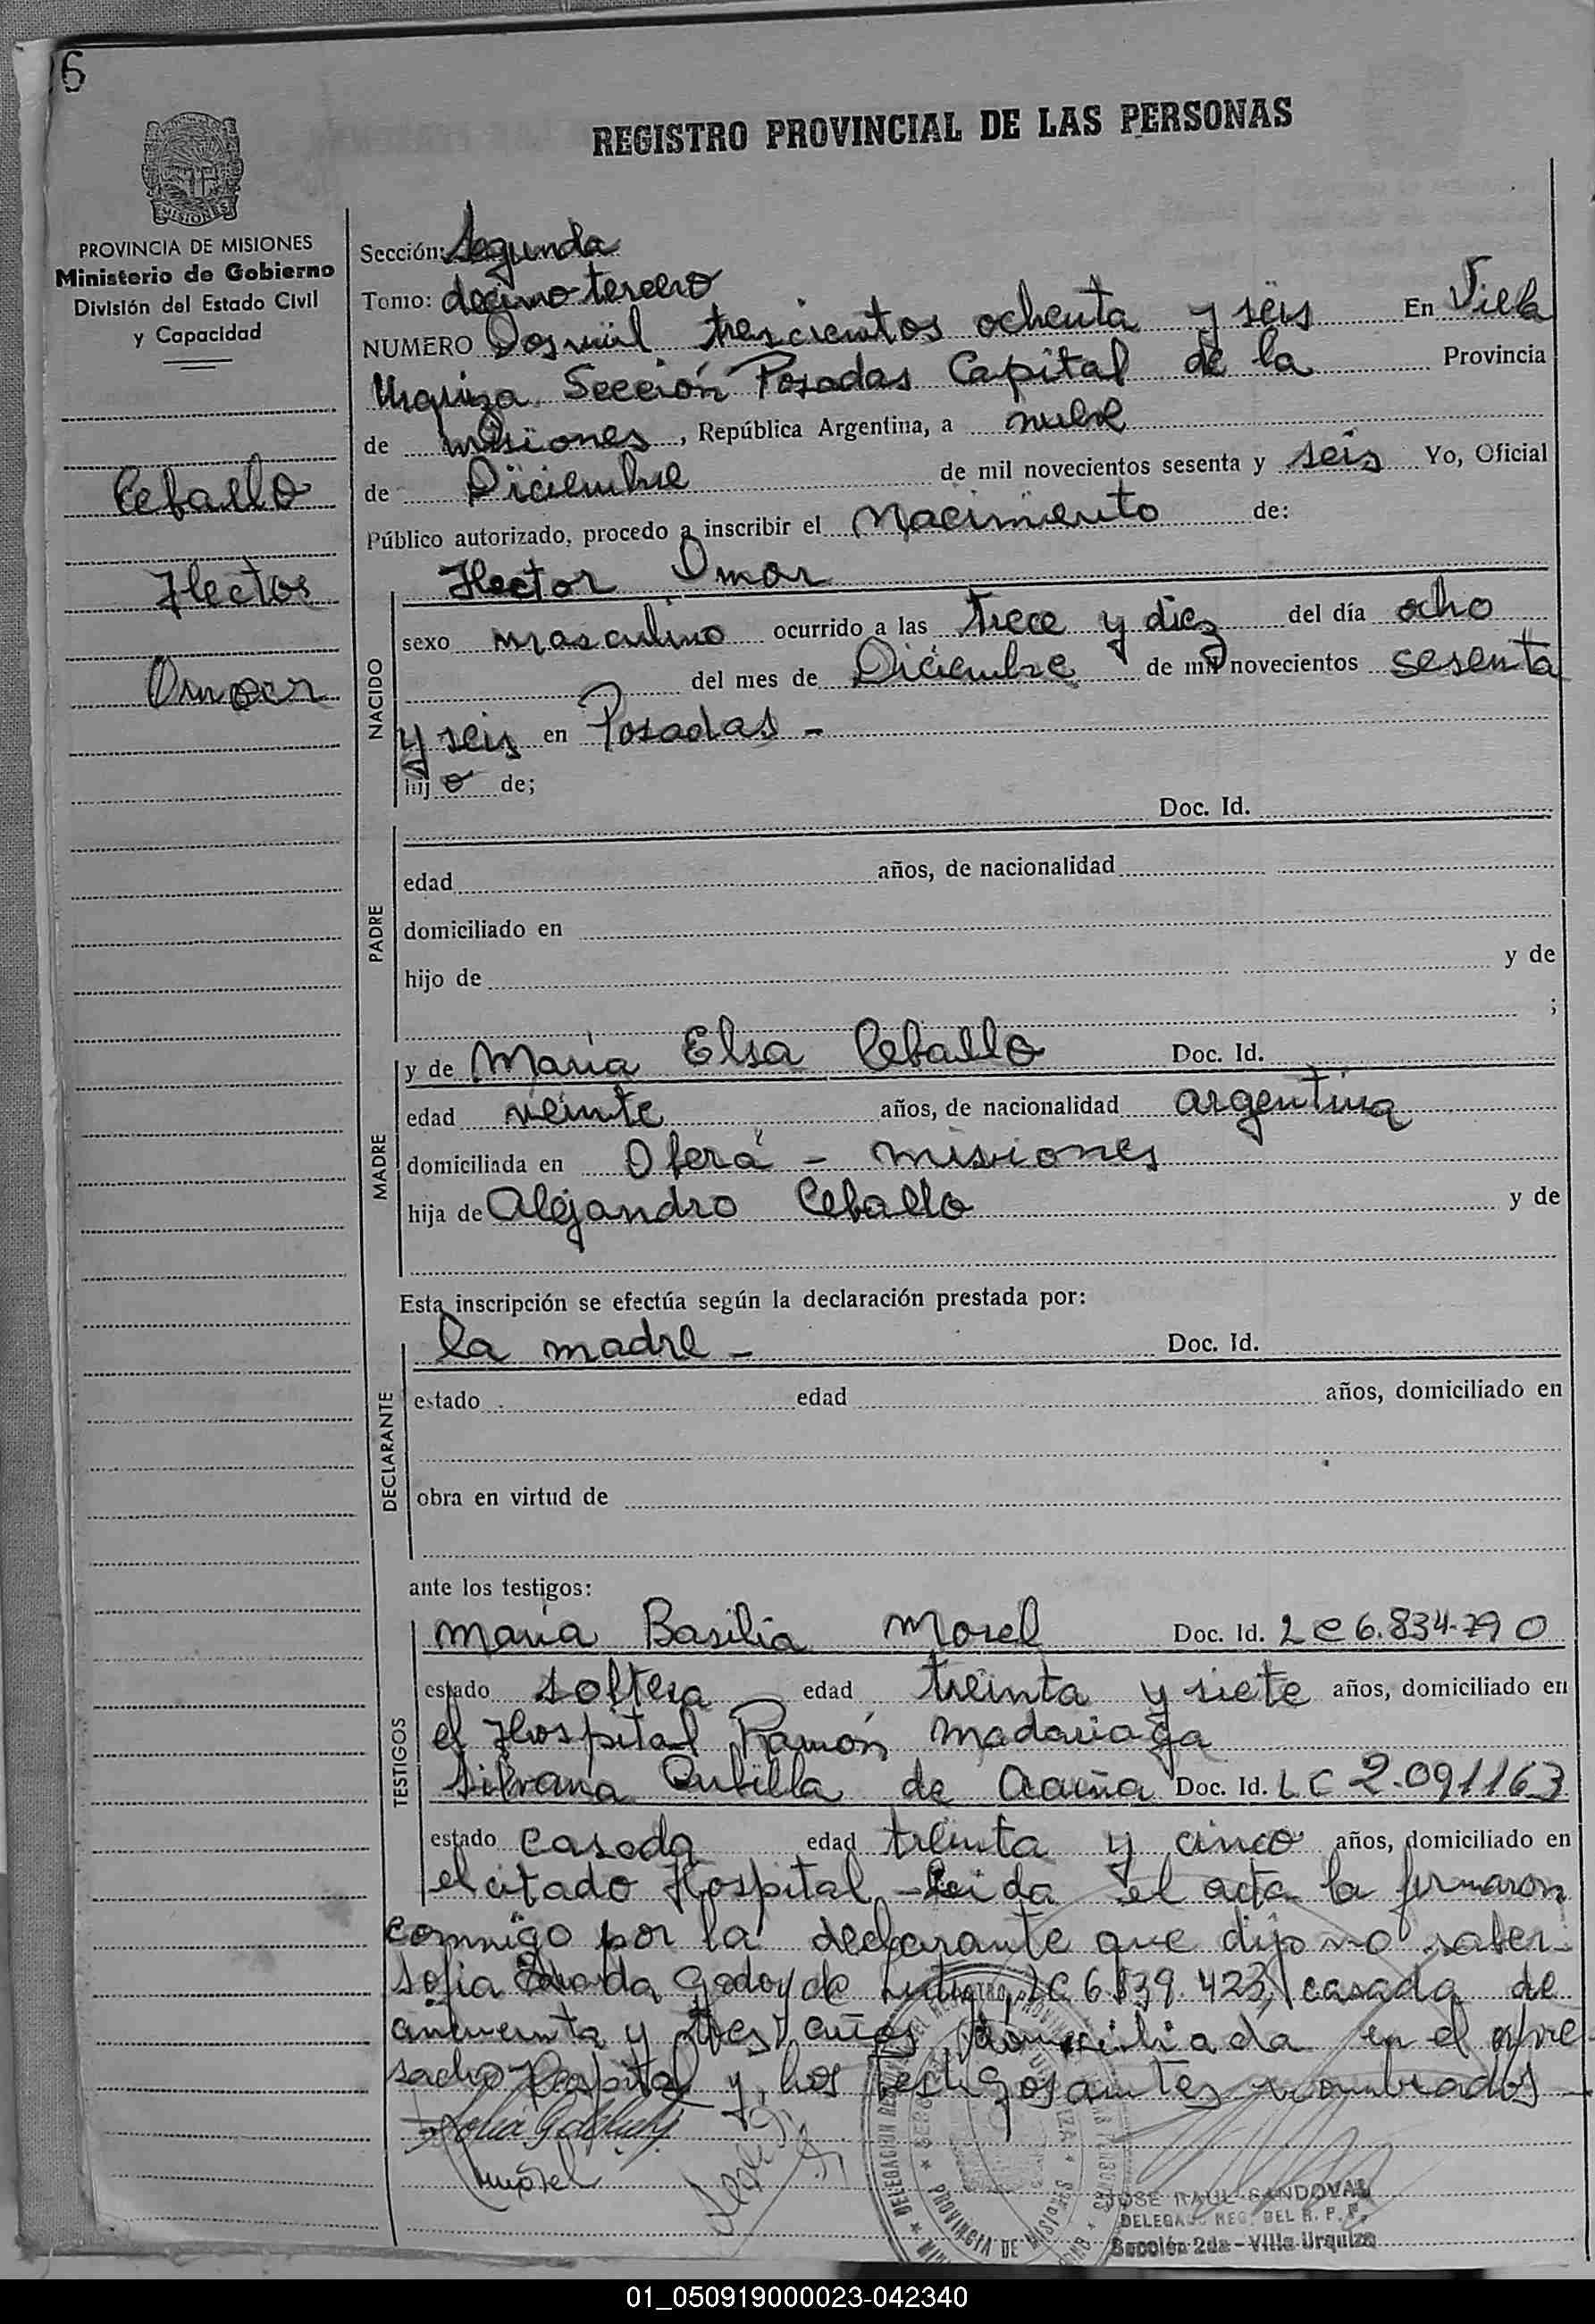 6
REGISTRO PROVINCIAL DE LAS PERSONAS
MISIONES
PROVINCIA DE MISIONES
Ministerio de Gobierno
División del Estado Civil
y Capacidad
Ceballo
Hector
Omar
Sección: Segunda
Tomo: decimo tercero
NUMERO Dos mil trescientos ochenta y seis En Villa
Urquiza Sección Posadas Capital de la Provincia
de misiones, República Argentina, a nueve
de Diciembre de mil novecientos sesenta y seis Yo, Oficial
Público autorizado, procedo a inscribir el Nacimiento de:
NACIDO
Hector Omar
sexo masculino ocurrido a las trece y diez del día ocho
del mes de Diciembre de mil novecientos sesenta
y seis en Posadas -
hijo de;
PADRE
Doc. Id.
edad años, de nacionalidad
domiciliado en
hijo de y de
;
MADRE
y de Maria Elsa Ceballo Doc. Id.
edad veinte años, de nacionalidad argentina
domiciliada en Oberá - misiones
hija de Alejandro Ceballo y de
Esta inscripción se efectúa según la declaración prestada por:
DECLARANTE
la madre - Doc. Id.
estado edad años, domiciliado en
obra en virtud de
ante los testigos:
TESTIGOS
Maria Basilia Morel Doc. Id. L C 6.834.790
estado soltera edad treinta y siete años, domiciliado en
el Hospital Ramón Madariaga
Silvana Cubilla de Acuña Doc. Id. L C 2.091163
estado casada edad treinta y cinco años, domiciliado en
el citado Hospital - Leida el acta la firmaron
conmigo por la declarante que dijo no saber
Sofia Godoy de LC 6839.423, casada de
cincuenta y tres años, domiciliada en el expre
sado Hospital y los testigos antes nombrados -
Morel
JOSE RAUL SANDOVAL
DELEGADO REG. DEL R. P. P.
Sección 2da - Villa Urquiza
PROVINCIA DE MISIONES
01_050919000023-042340